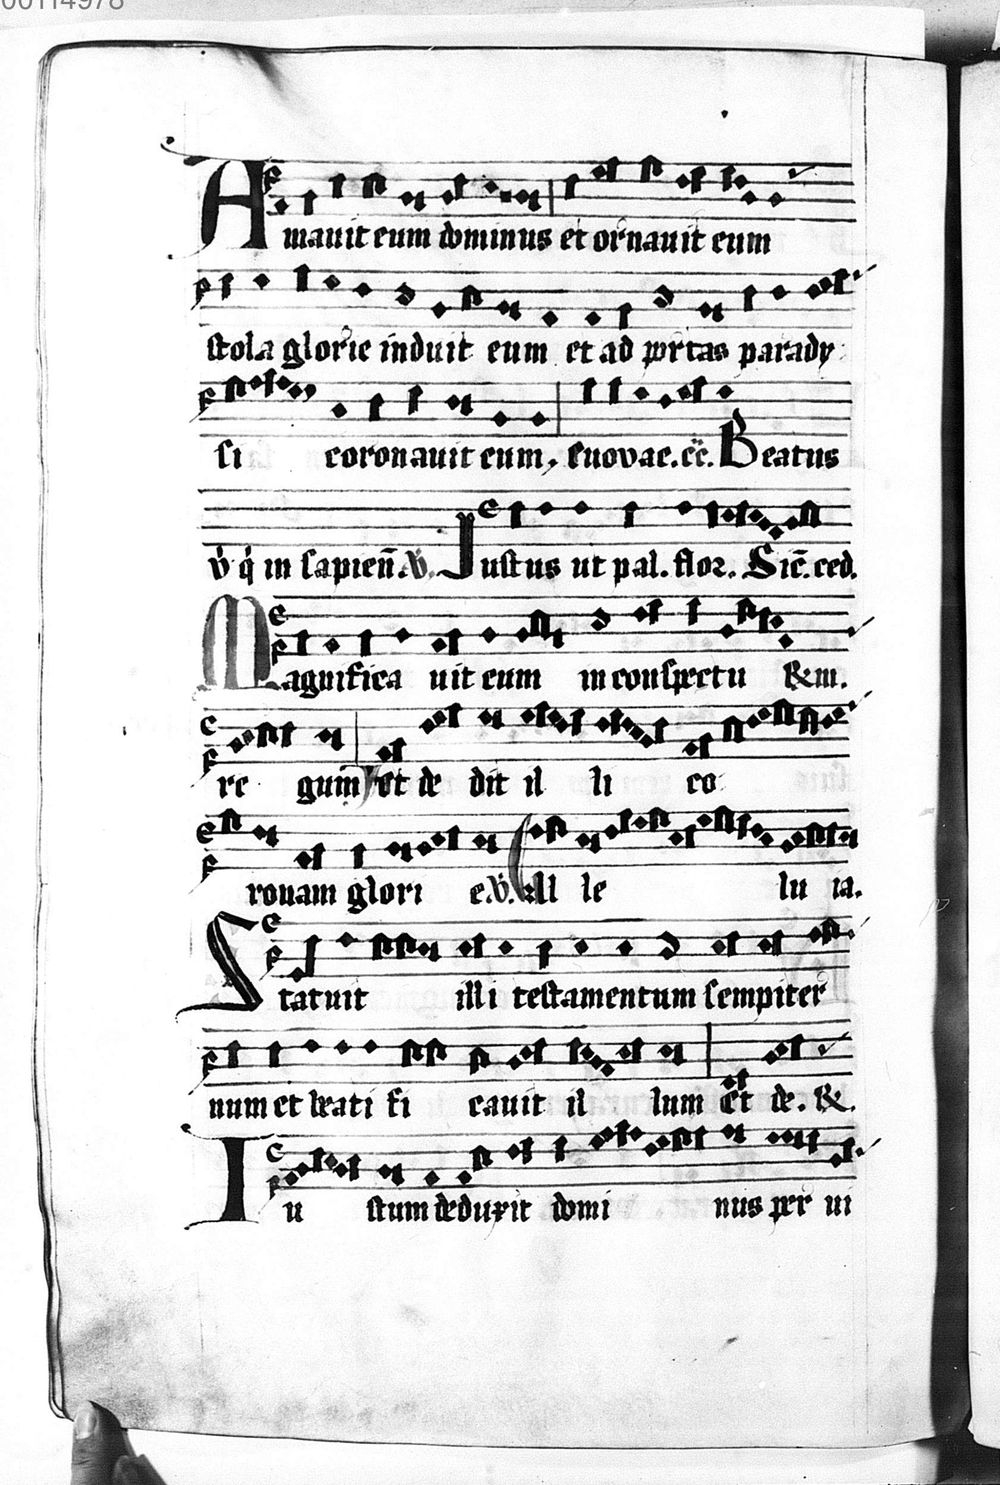 00114978
Amauit eum dominus et ornauit eum
stola glorie induit eum et ad portas parady
si coronauit eum, euovae. cc. Beatus
v q in sapien. v. Justus ut pal. flor. Sic. ced.
Magnifica uit eum in conspectu & m.
re gum et de dit il li co
ronam glori e. v. All le lu ia.
Statuit illi testamentum sempiter
num et beati fi cauit il lum Et de. &.
Iu stum deduxit domi nus per ui